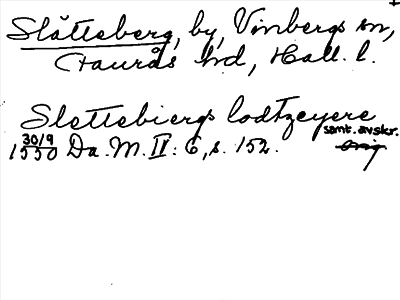 Slätteberg, by, Vinbergs sn,
Faurås hd, Hall. l.
Slettebiergs lodtzeyere
samt. avskr.
30/9
1550 Da. M. IV: 6, s. 152. orig